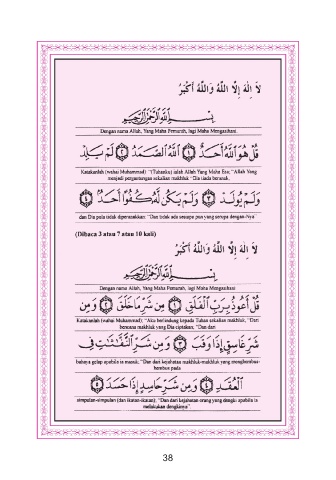 لاَ إِلٰهَ إِلَّا اللَّهُ وَاللَّهُ أَكْبَرُ
بِسْمِ اللَّهِ الرَّحْمَٰنِ الرَّحِيمِ
Dengan nama Allah, Yang Maha Pemurah, lagi Maha Mengasihani.
قُلْ هُوَ اللَّهُ أَحَدٌ ۝١ اللَّهُ الصَّمَدُ ۝٢ لَمْ يَلِدْ
Katakanlah (wahai Muhammad): "(Tuhanku) ialah Allah Yang Maha Esa; "Allah Yang
menjadi pergantungan sekalian makhluk "Dia tiada beranak,
وَلَمْ يُولَدْ ۝٣ وَلَمْ يَكُن لَّهُ كُفُوًا أَحَدٌ ۝٤
dan Dia pula tidak diperanakkan; "Dan tidak ada sesiapa pun yang serupa dengan-Nya"
(Dibaca 3 atau 7 atau 10 kali)
لاَ إِلٰهَ إِلَّا اللَّهُ وَاللَّهُ أَكْبَرُ
بِسْمِ اللَّهِ الرَّحْمَٰنِ الرَّحِيمِ
Dengan nama Allah, Yang Maha Pemurah, lagi Maha Mengasihani.
قُلْ أَعُوذُ بِرَبِّ الْفَلَقِ ۝١ مِن شَرِّ مَا خَلَقَ ۝٢ وَمِن
Katakanlah (wahai Muhammad); "Aku berlindung kepada Tuhan sekalian makhluk, "Dari
bencana makhluk yang Dia ciptakan; "Dan dari
شَرِّ غَاسِقٍ إِذَا وَقَبَ ۝٣ وَمِن شَرِّ النَّفَّاثَاتِ فِي
bahaya gelap apabila ia masuk; "Dan dari kejahatan makhluk-makhluk yang menghembus-
hembus pada
الْعُقَدِ ۝٤ وَمِن شَرِّ حَاسِدٍ إِذَا حَسَدَ ۝٥
simpulan-simpulan (dan ikatan-ikatan), "Dan dari kejahatan orang yang dengki apabila ia
melakukan dengkinya".
38